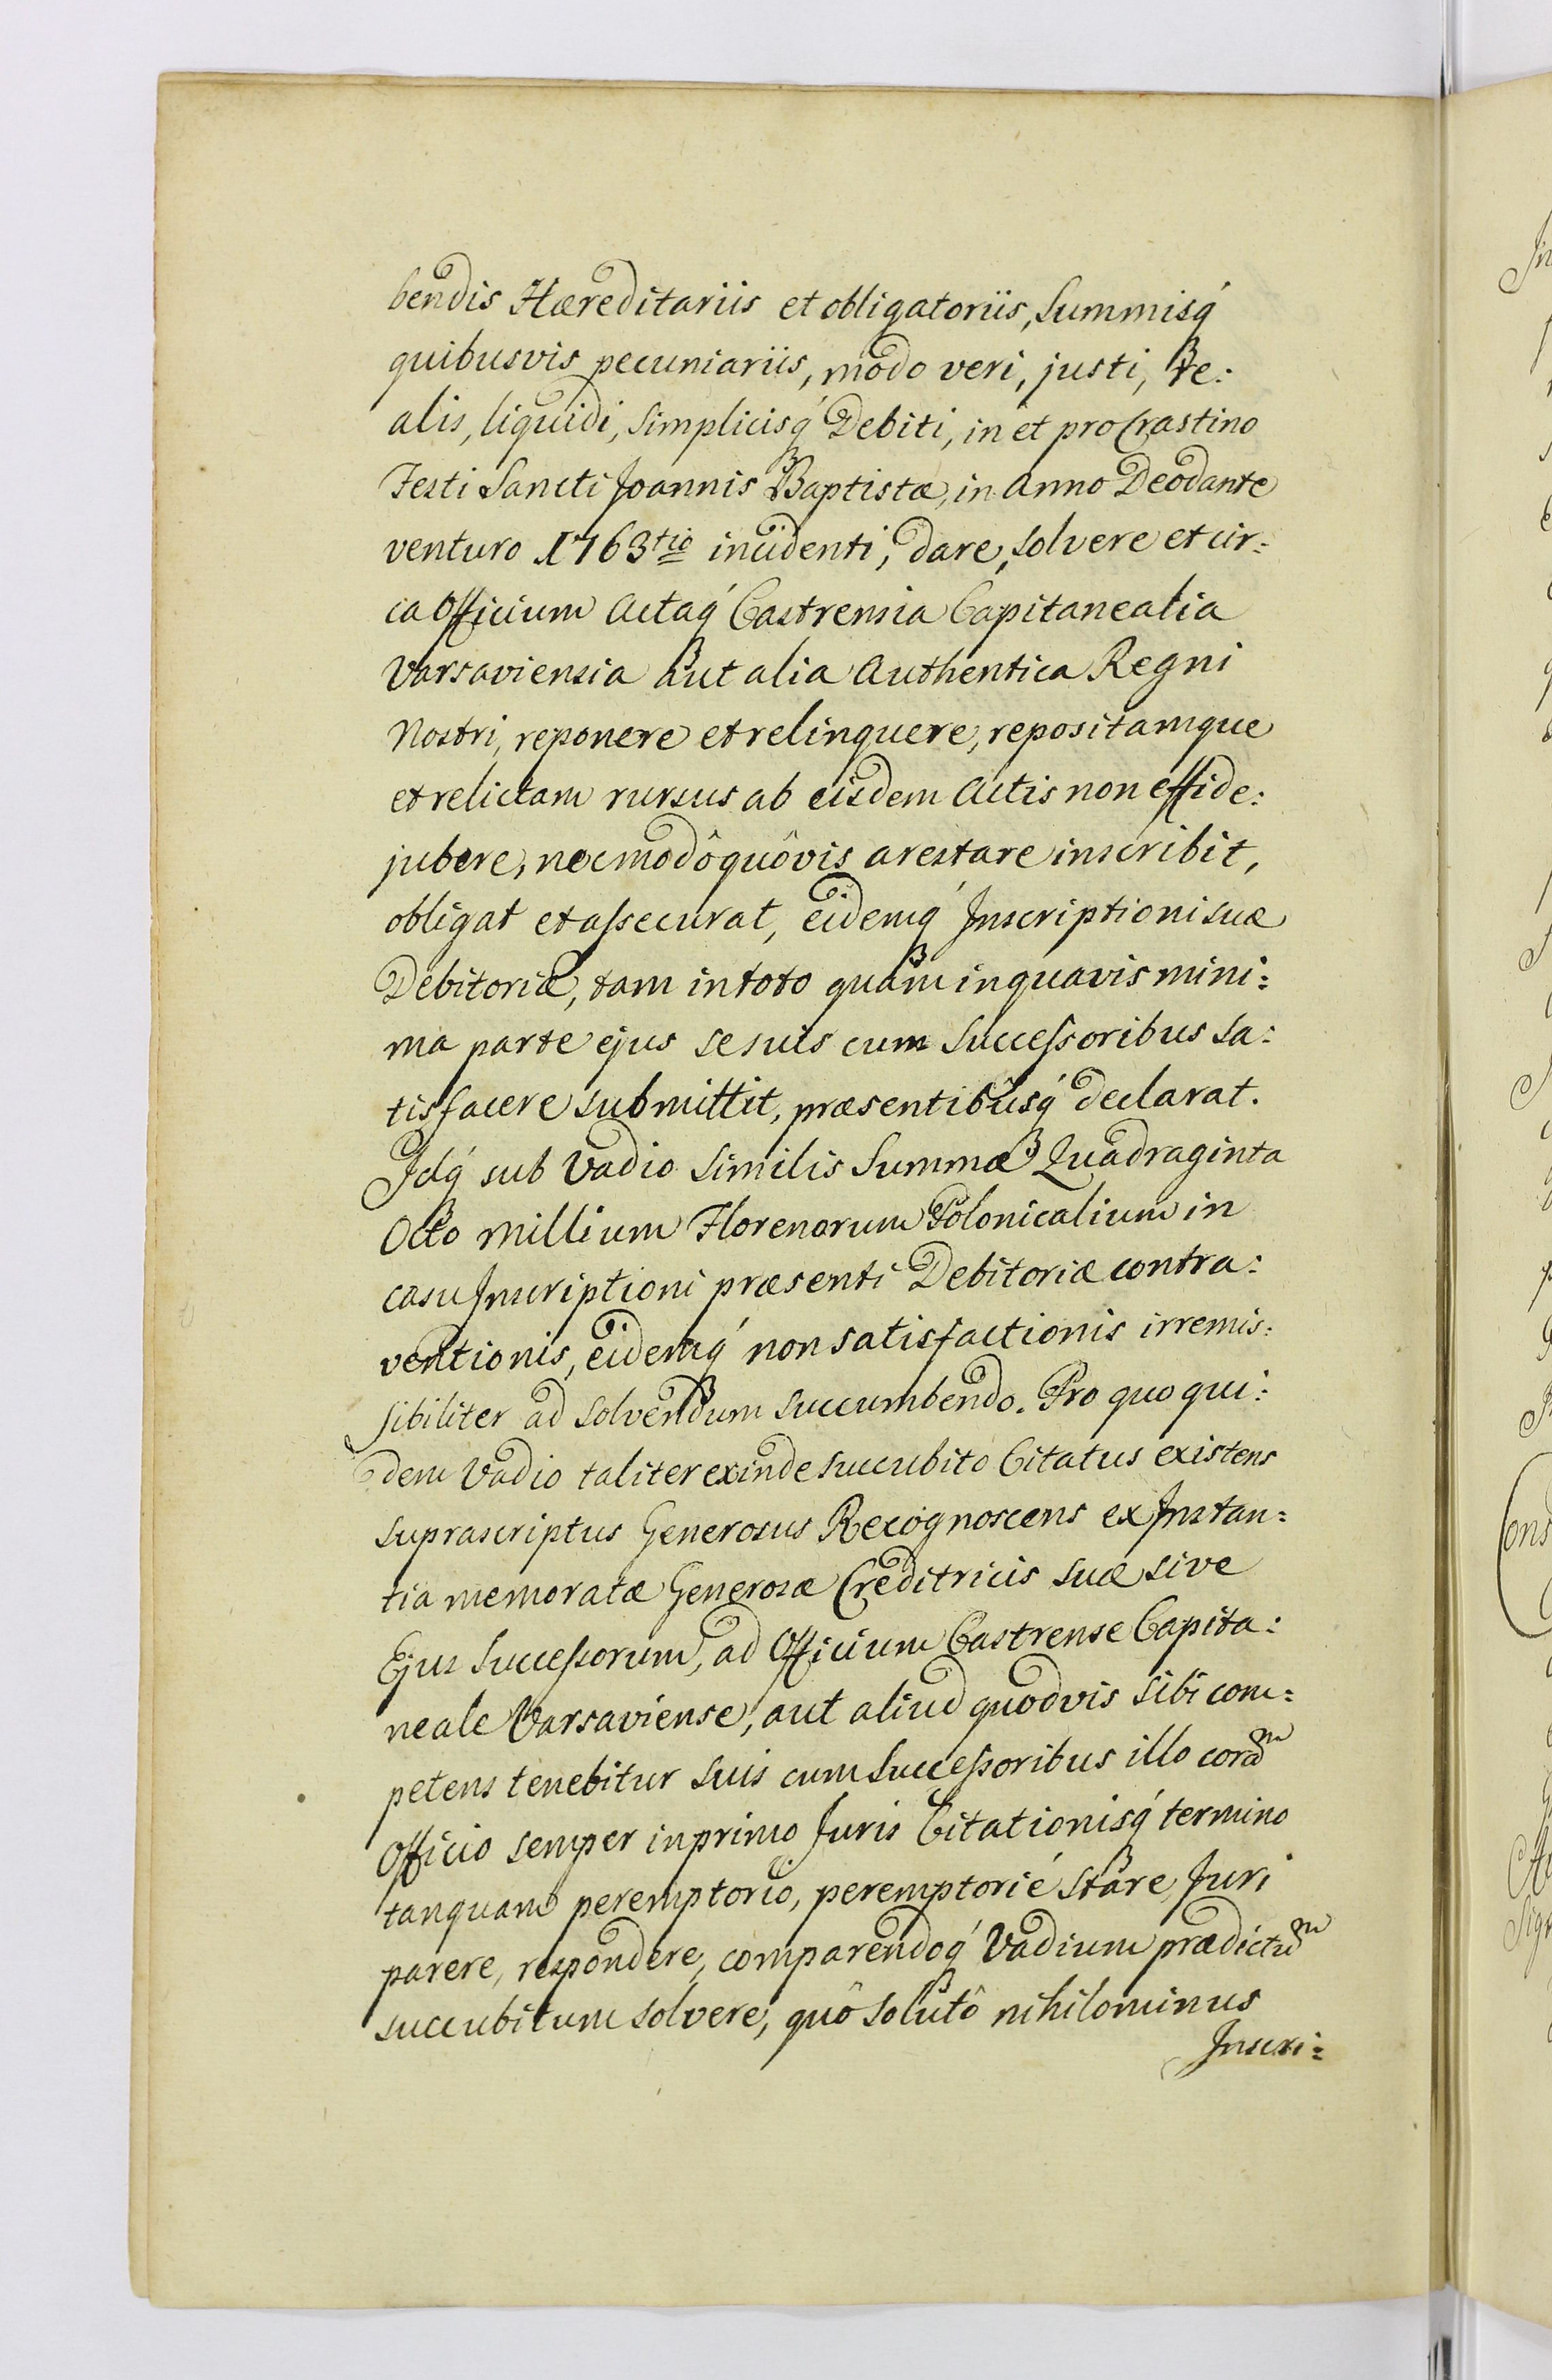 bendis Hæreditariis et obligatoriis, Summisq́
quibusvis pecuniariis, modo veri, justi, re:
alis, liquidi, simplicisq́ Debiti, in et pro Crastino
Festi Sancti Joannis Baptistæ, in Anno Deo dante
venturo 1763tio incidenti, dare, solvere et cir:
ca Officium Actaq́ Castrensia Capitanealia
Varsaviensia aut alia Authentica Regni
Nostri, reponere et relinquere, repositamque
et relictam rursus ab eisdem Actis non effide:
jubere, nec modô quôvis arestare inscribit,
obligat et assecurat, eidemq́ Inscriptioni suæ
Debitoriæ, tam in toto quam in quavis mini:
ma parte ejus se suis cum Successoribus sa:
tisfacere submittit, præsentibusq́ declarat.
Idq́ sub Vadio similis Summæ Quadraginta
Octo Millium Florenorum Polonicalium in
casu Inscriptioni præsenti Debitoriæ contra:
ventionis, eidemq́ non satisfactionis irremis:
sibiliter ad solvendum succumbendo. Pro quo qui:
dem Vadio taliter exinde succubito Citatus existens
suprascriptus Generosus Recognoscens ex Instan:
tia memoratæ Generosæ Creditricis suæ sive
Ejus Successorum, ad Officium Castrense Capita:
neale Varsaviense, aut aliud quodvis sibi com:
petens tenebitur suis cum Successoribus illo coram
Officio semper in primo Juris Citationisq́ termino
tanquam peremptorio, peremptorié stare, Juri
parere, respondere, comparendoq́ Vadium prædictum
succubitum solvere, quô solutô nihilominus
Inscri: